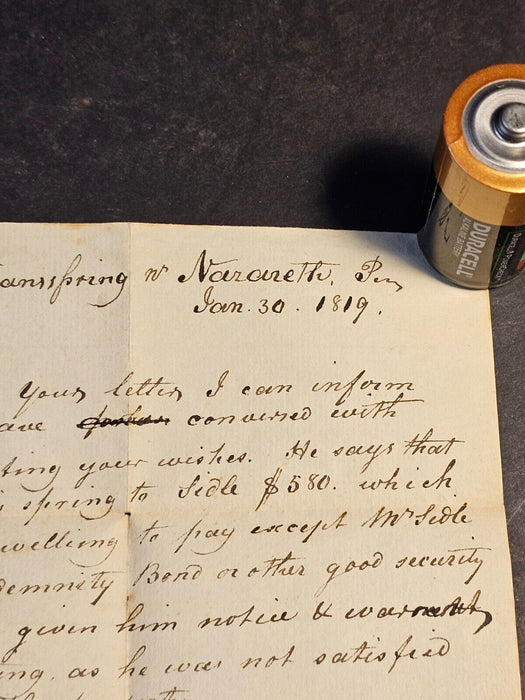 DURACELL
ALKALINE BATTERY
ansspring nr Nazareth, Pen,
Jan. 30. 1819.
your letter, I can inform
ave conversed with
ting your wishes. He says that
spring to Sidle $580. which
welling to pay except Mr Sidle
demnity Bond or other good security
given him notice &
ing. as he was not satisfied